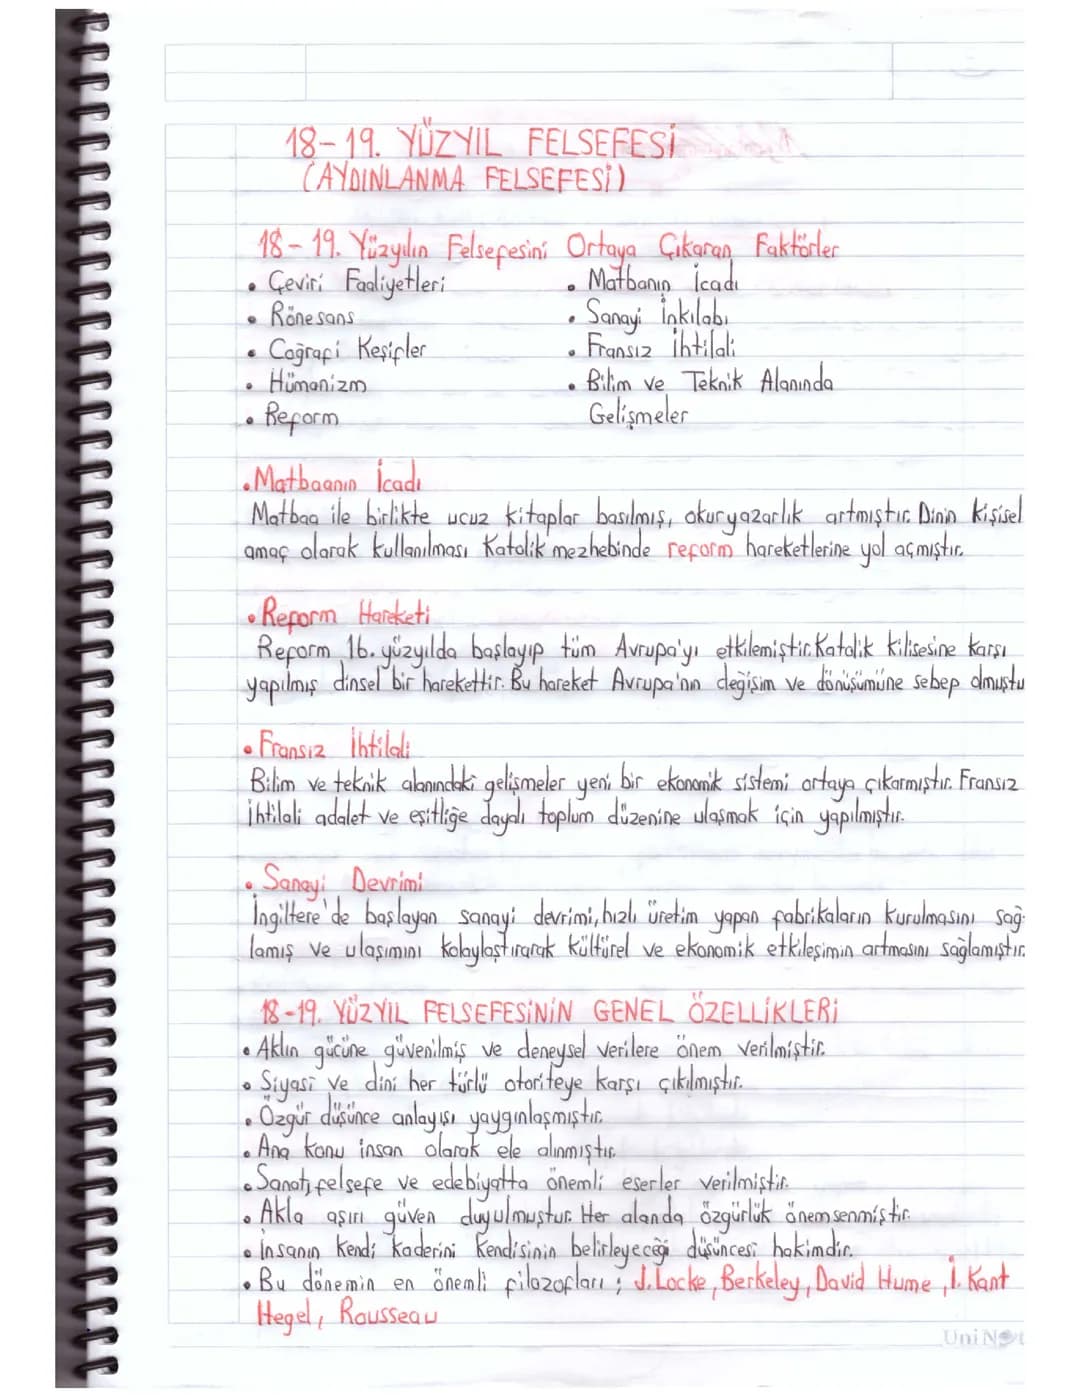 18-19. YÜZYIL FELSEFESİ
(AYDINLANMA FELSEFESİ)
18-19. Yüzyılın Felsefesini Ortaya Çıkaran Faktörler
• Çeviri Faaliyetleri
• Rönesans
• Coğrafi Keşifler
• Hümanizm
• Reform
• Matbanın İcadı
• Sanayi İnkılabı
• Fransız İhtilali
• Bilim ve Teknik Alanında
Gelişmeler
• Matbaanın İcadı
Matbaa ile birlikte ucuz kitaplar basılmış, okuryazarlık artmıştır. Dinin kişisel
amaç olarak kullanılması Katolik mezhebinde reform hareketlerine yol açmıştır.
• Reform Hareketi
Reform 16. yüzyılda başlayıp tüm Avrupa'yı etkilemiştir. Katolik kilisesine karşı
yapılmış dinsel bir harekettir. Bu hareket Avrupa'nın değişim ve dönüşümüne sebep olmuştu
• Fransız İhtilali
Bilim ve teknik alanındaki gelişmeler yeni bir ekonomik sistemi ortaya çıkarmıştır. Fransız
İhtilali adalet ve eşitliğe dayalı toplum düzenine ulaşmak için yapılmıştır.
• Sanayi Devrimi
İngiltere'de başlayan sanayi devrimi, hızlı üretim yapan fabrikaların kurulmasını sağ-
lamış ve ulaşımını kolaylaştırarak kültürel ve ekonomik etkileşimin artmasını sağlamıştır.
18-19. YÜZYIL FELSEFESİNİN GENEL ÖZELLİKLERİ
• Aklın gücüne güvenilmiş ve deneysel verilere önem verilmiştir.
• Siyasi ve dini her türlü otoriteye karşı çıkılmıştır.
• Özgür düşünce anlayışı yaygınlaşmıştır.
• Ana konu insan olarak ele alınmıştır.
• Sanat, felsefe ve edebiyatta önemli eserler verilmiştir.
• Akla aşırı güven duyulmuştur. Her alanda özgürlük önemsenmiştir.
• İnsanın kendi kaderini kendisinin belirleyeceği düşüncesi hakimdir.
• Bu dönemin en önemli filozofları; J. Locke, Berkeley, David Hume, İ. Kant
Hegel, Rousseau
UniNot